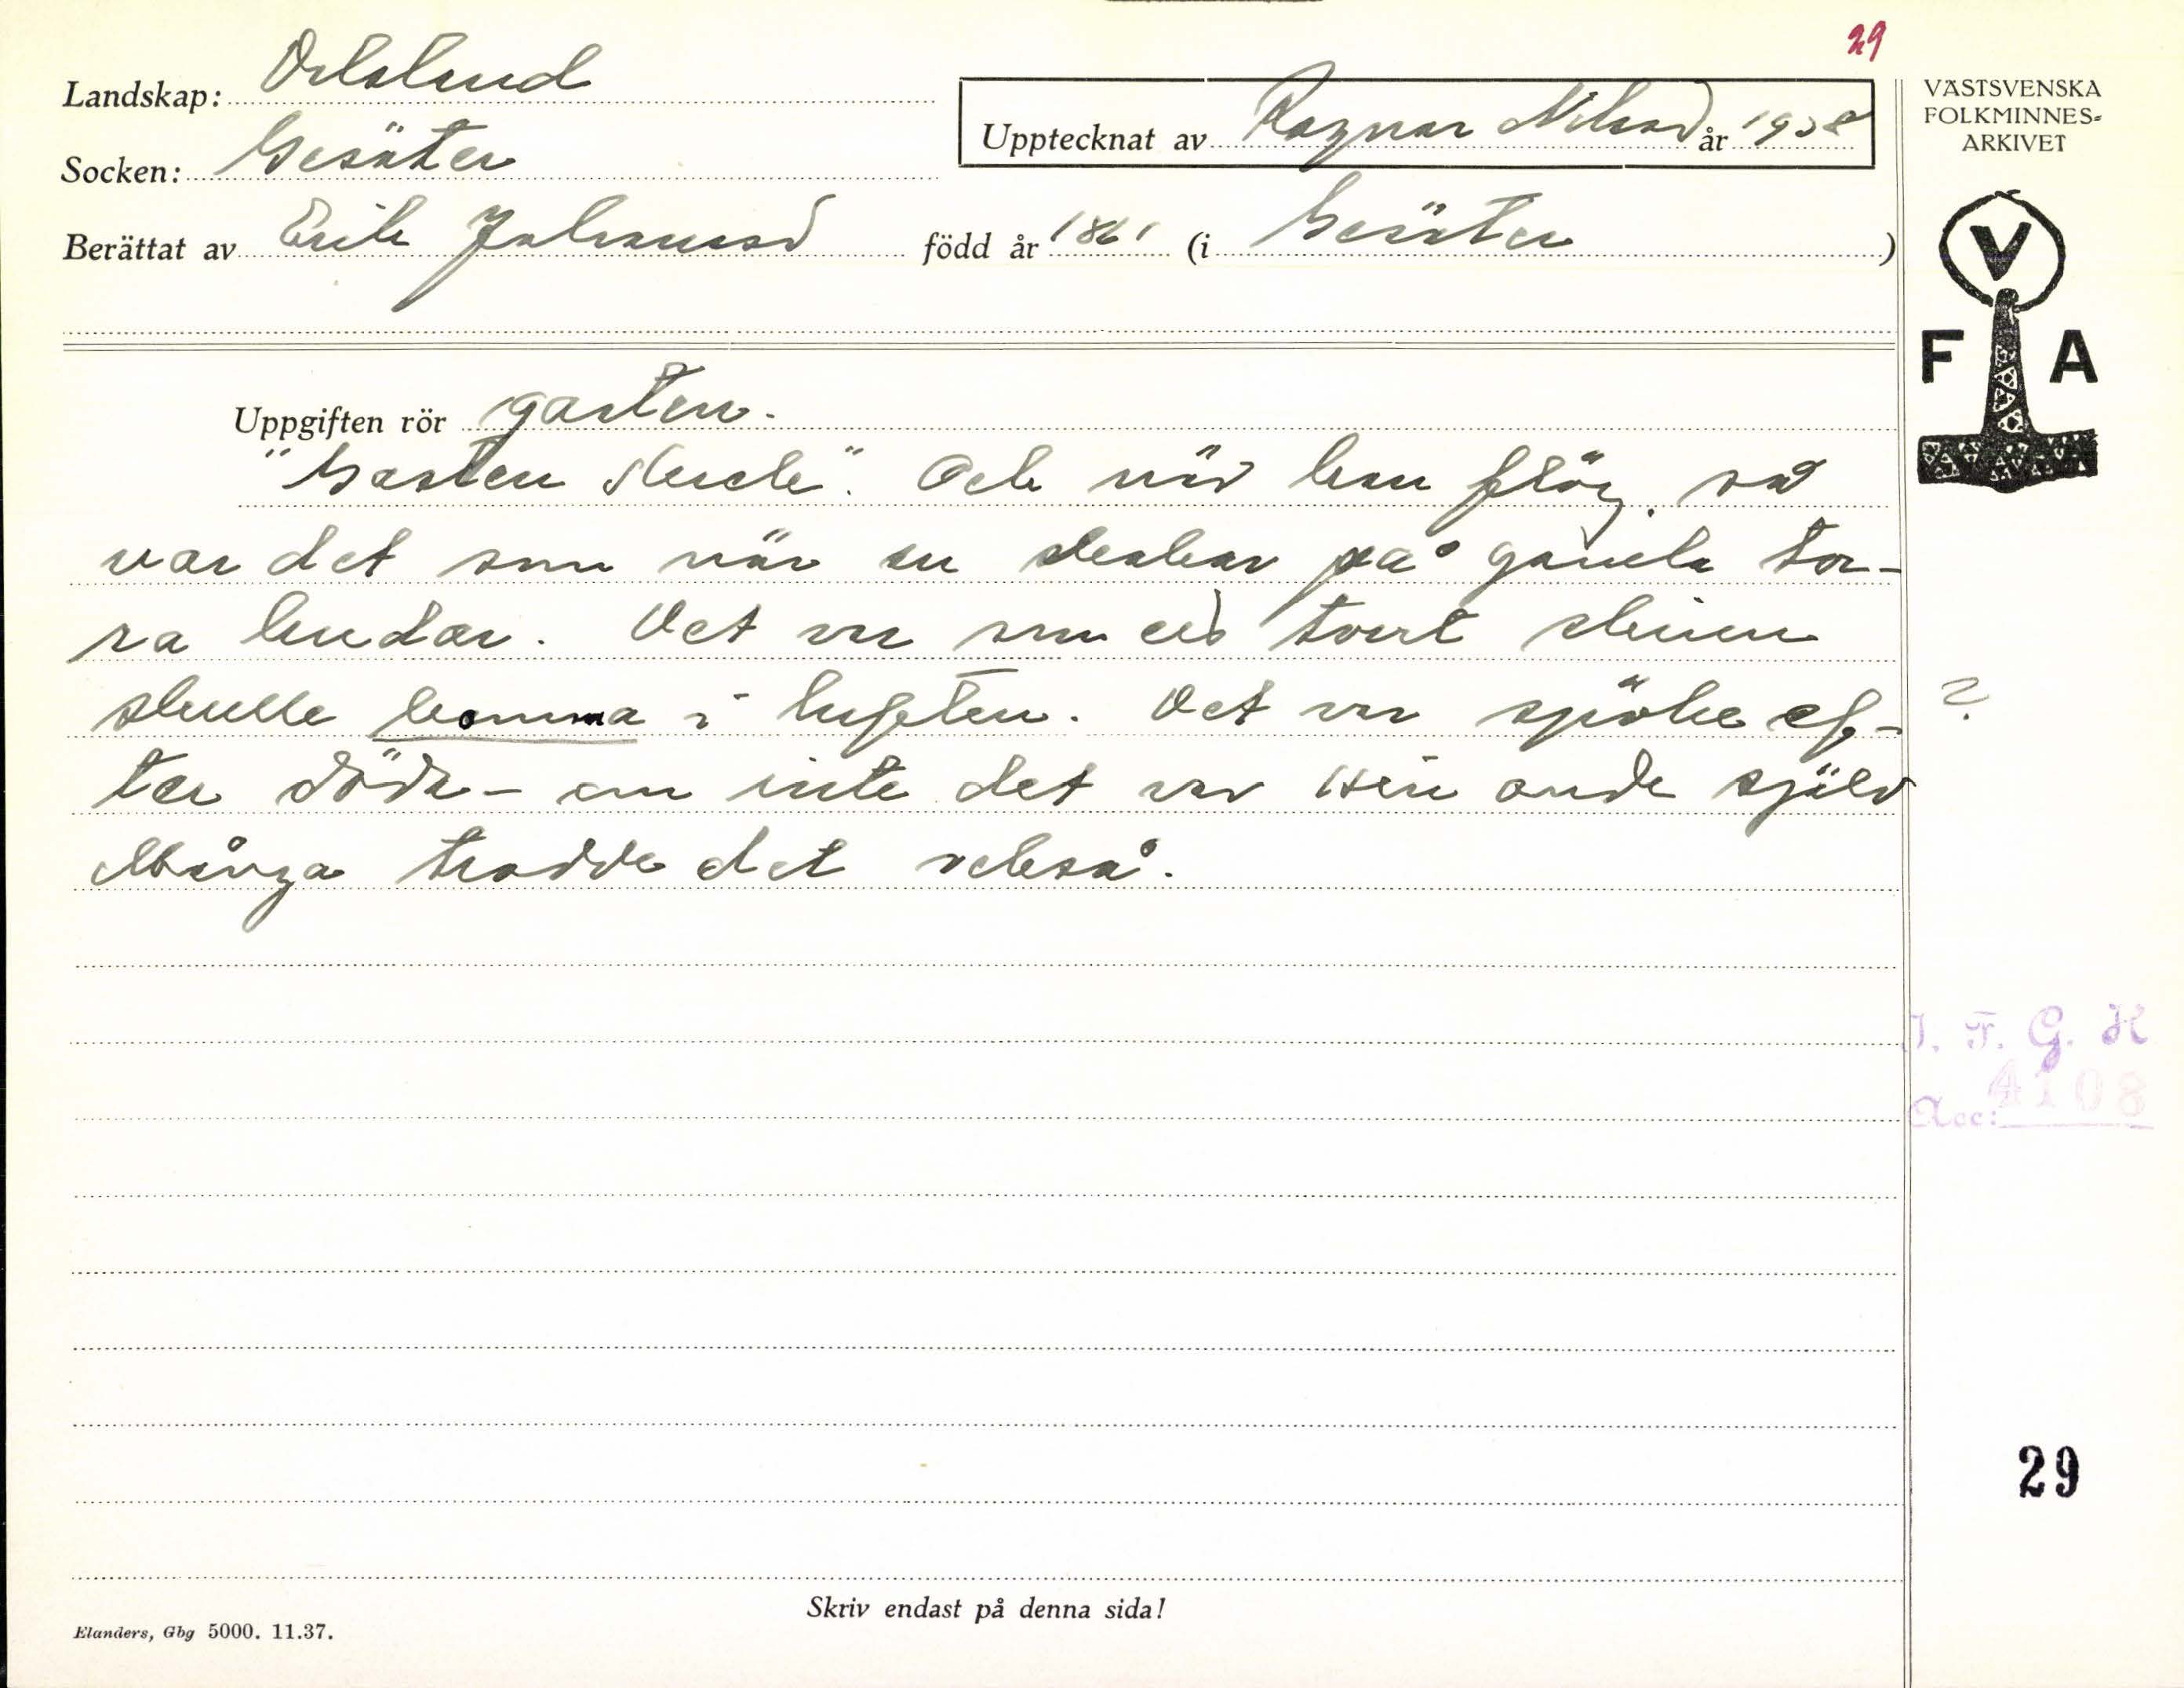 29
Landskap: Dalsland
Socken: Gesäter
Upptecknat av Ragnar Nilsson år 1938
Berättat av Erik Johansson född år 1861 (i Gesäter)
VÄSTSVENSKA
FOLKMINNES-
ARKIVET
V
F A
Uppgiften rör gasten.
"Gasten skrek". Och när han flög, så
var det som när en skakar på gamla tor-
ra hudar. Det var som ett tort skinn
skulle komma i luften. Det var spöke ef- ?
ter döda - om inte det var Hin onde själv
Många trodde det också.
I. F. G. H
Acc: 4108
29
Skriv endast på denna sida!
Elanders, Gbg 5000. 11.37.